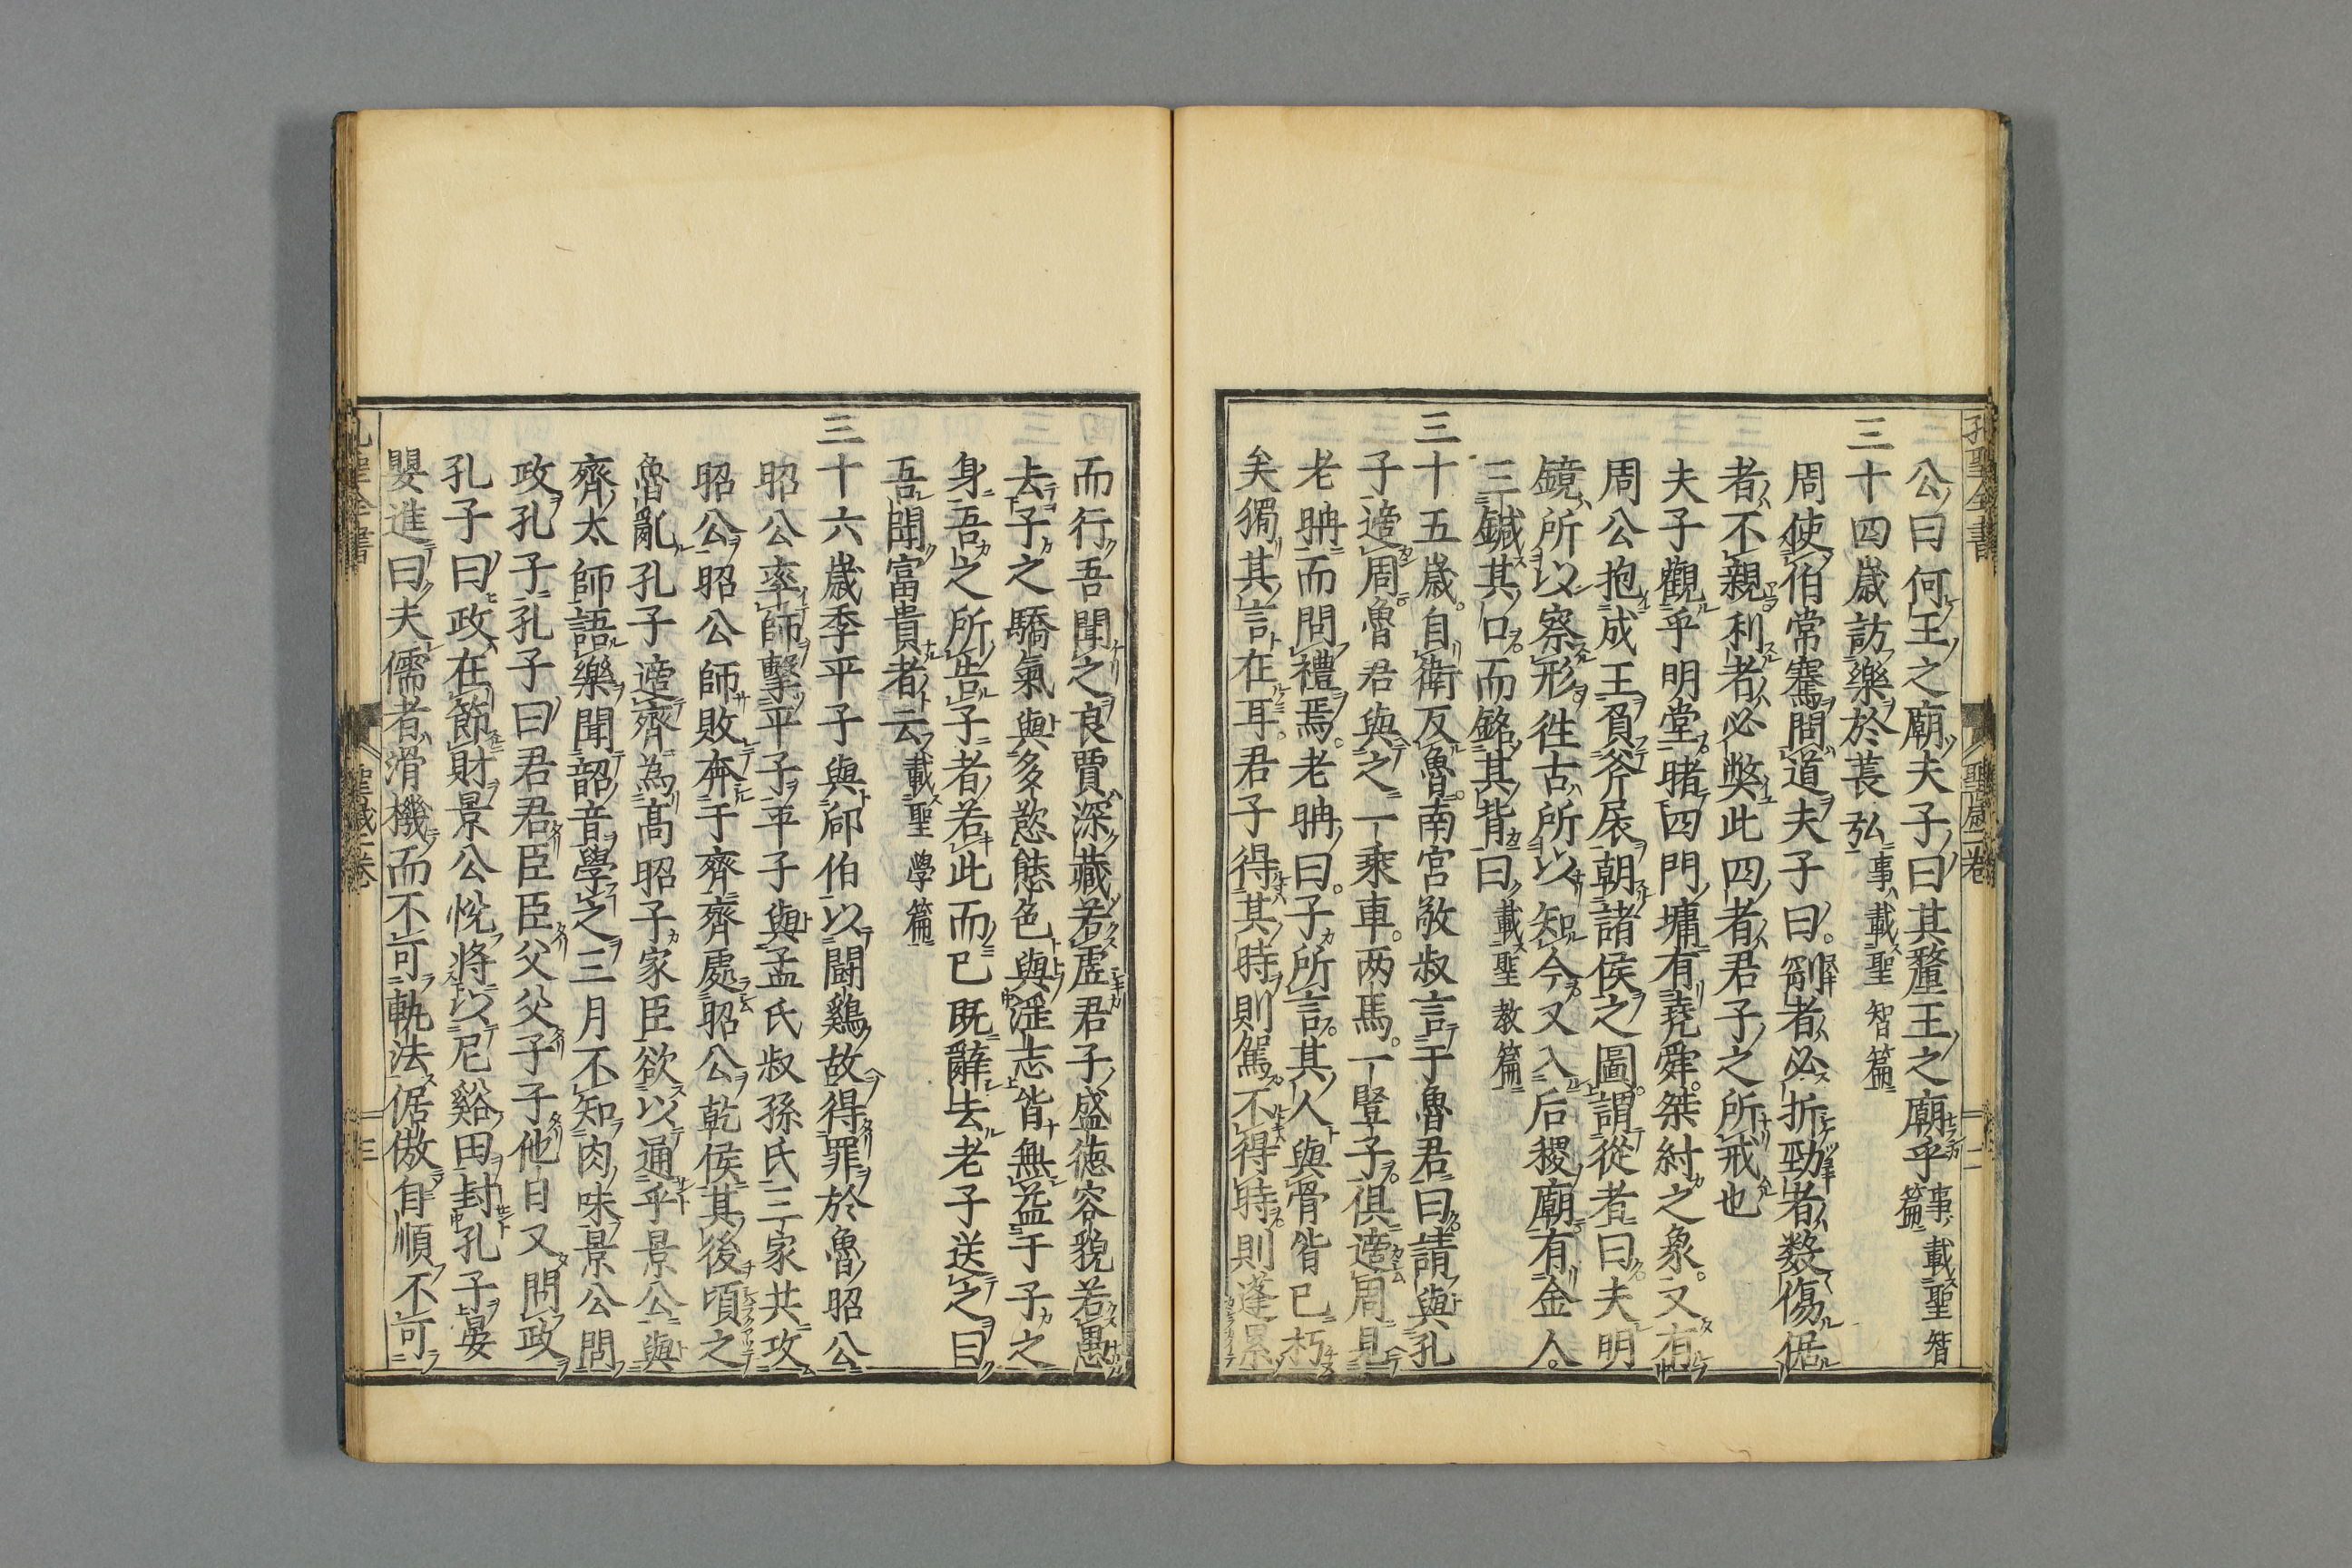 孔聖全書
聖感二卷
二
公曰何王之廟夫子曰其釐王之廟乎事載聖智篇
三十四歲訪樂於萇弘事載聖智篇
周使伯常騫問道夫子曰劀者必折勁者数傷倨
者不親利者必獘此四者君子之所戒也
夫子觀乎明堂睹四門墉有堯舜桀紂之象又有
周公抱成王負斧扆朝諸侯之圖謂從者曰夫明
鏡所以察形徃古所以知今又入后稷廟有金人
三鍼其口而銘其背曰載聖教篇
三十五歲自衛反魯南宮敬叔言于魯君曰請與孔
子適周魯君與之一乘車两馬一豎子俱適周見
老聃而問禮焉老聃曰子所言其人與骨皆已朽
矣獨其言在耳君子得其時則駕不得時則逢累
而行吾聞之良賈深藏若虛君子盛德容貌若愚
去子之驕氣與多慾態色與淫志皆無益于子之
身吾之所告子者若此而已既辭去老子送之曰
吾聞富貴者云載聖學篇
三十六歲季平子與郈伯以鬪鷄故得罪於魯昭公
昭公率師擊平子平子與孟氏叔孫氏三家共攻
昭公昭公師敗奔于齊齊處昭公乾侯其後頃之
魯亂孔子適齊為高昭子家臣欲以通乎景公與
齊太師語樂聞韶音學之三月不知肉味景公問
政孔子孔子曰君君臣臣父父子子他日又問政
孔子曰政在節財景公悅將以尼谿田封孔子晏
嬰進曰夫儒者滑機而不可軌法倨傲自順不可
聖全書
卷
三